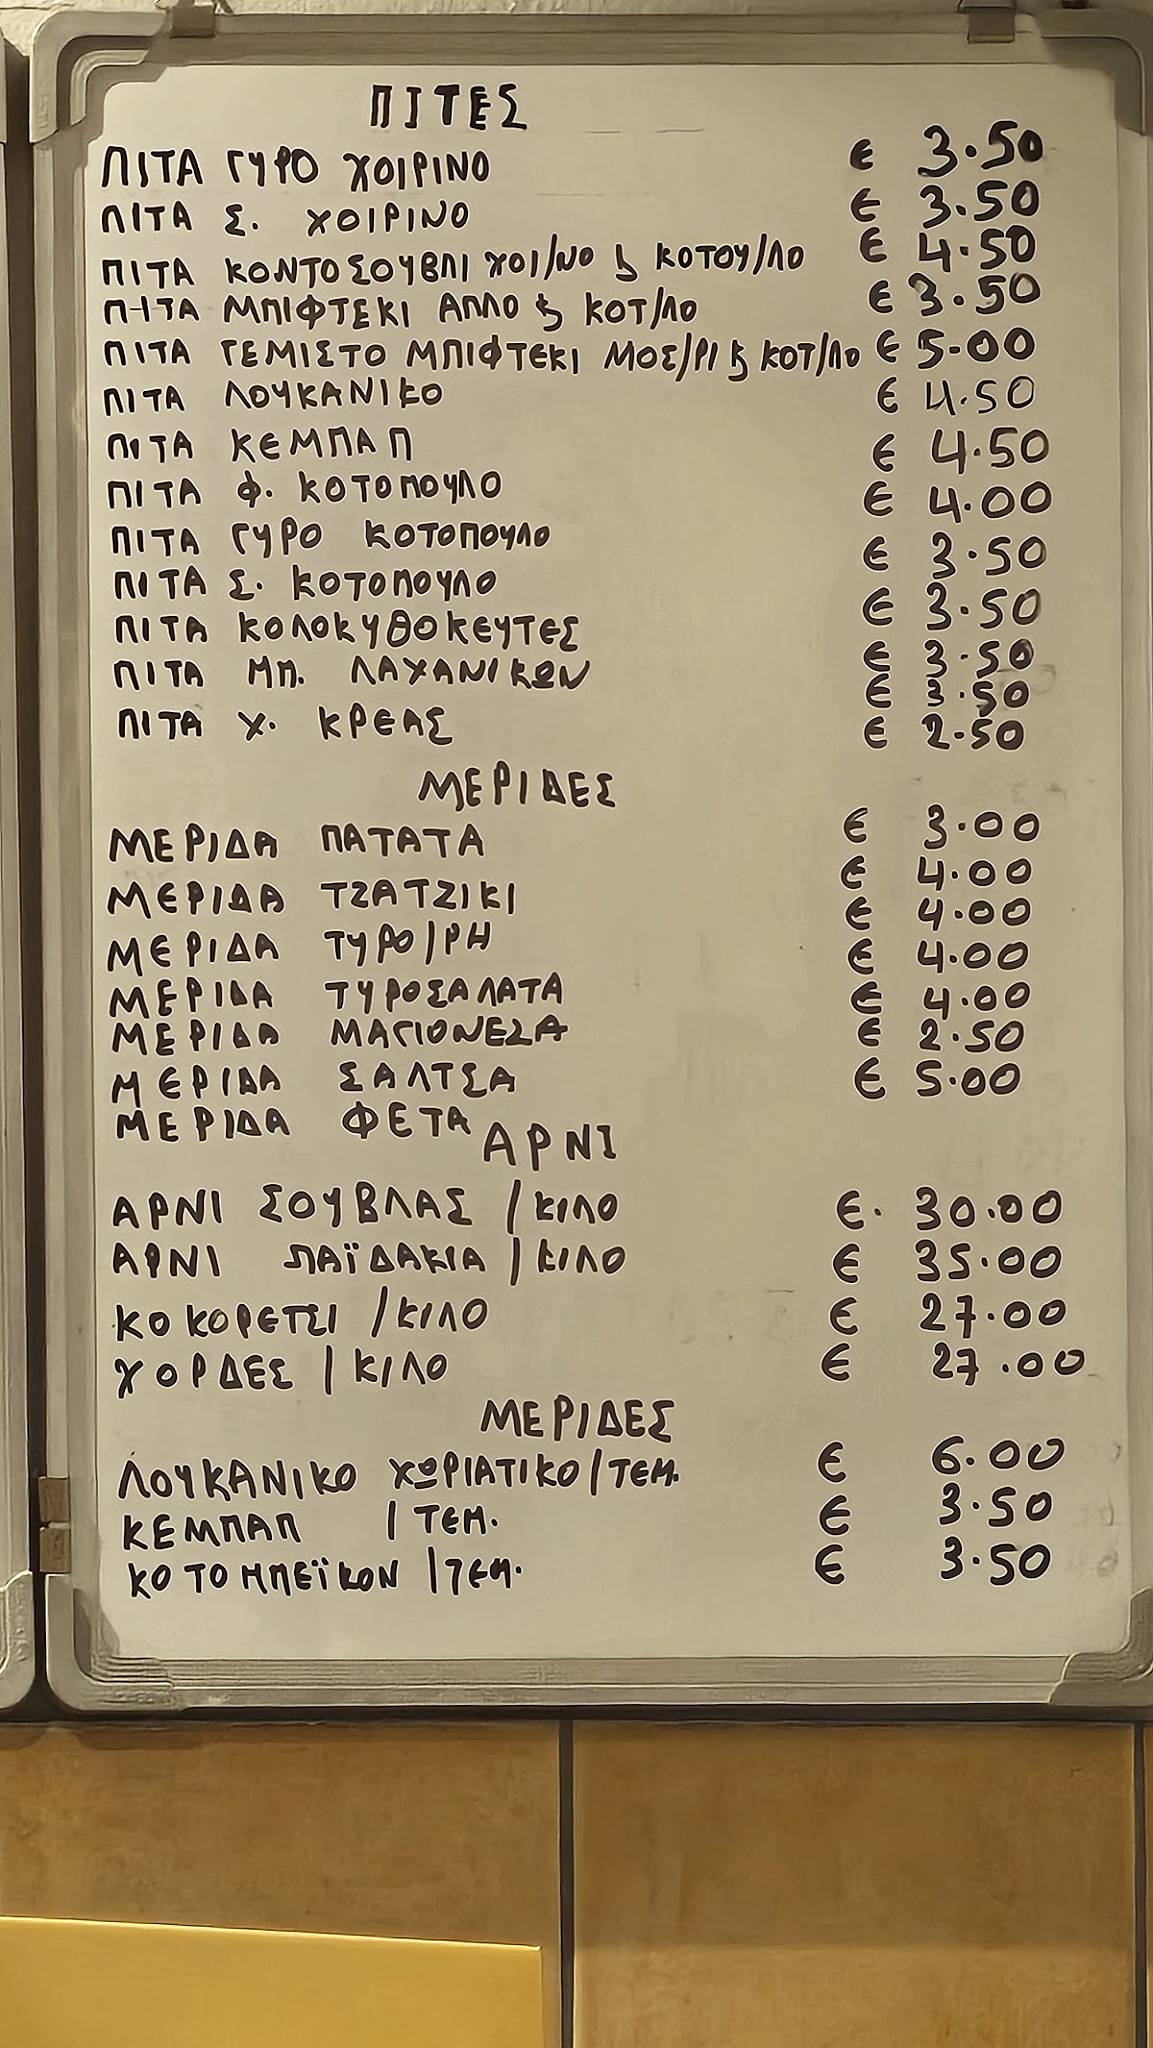 ΠΙΤΕΣ
ΠΙΤΑ ΓΥΡΟ ΧΟΙΡΙΝΟ € 3.50
ΠΙΤΑ Σ. ΧΟΙΡΙΝΟ € 3.50
ΠΙΤΑ ΚΟΝΤΟΣΟΥΒΛΙ ΧΟΙ/ΝΟ & ΚΟΤΟΥ/ΛΟ € 4.50
ΠΙΤΑ ΜΠΙΦΤΕΚΙ ΑΠΛΟ & ΚΟΤ/ΛΟ € 3.50
ΠΙΤΑ ΓΕΜΙΣΤΟ ΜΠΙΦΤΕΚΙ ΜΟΣ/ΡΙ & ΚΟΤ/ΛΟ € 5.00
ΠΙΤΑ ΛΟΥΚΑΝΙΚΟ € 4.50
ΠΙΤΑ ΚΕΜΠΑΠ € 4.50
ΠΙΤΑ Φ. ΚΟΤΟΠΟΥΛΟ € 4.00
ΠΙΤΑ ΓΥΡΟ ΚΟΤΟΠΟΥΛΟ € 3.50
ΠΙΤΑ Σ. ΚΟΤΟΠΟΥΛΟ € 3.50
ΠΙΤΑ ΚΟΛΟΚΥΘΟΚΕΥΤΕΣ € 3.50
ΠΙΤΑ ΜΠ. ΛΑΧΑΝΙΚΩΝ € 3.50
ΠΙΤΑ Χ. ΚΡΕΑΣ € 2.50
ΜΕΡΙΔΕΣ
ΜΕΡΙΔΑ ΠΑΤΑΤΑ € 3.00
ΜΕΡΙΔΑ ΤΖΑΤΖΙΚΙ € 4.00
ΜΕΡΙΔΑ ΤΥΡΟ/ΡΗ € 4.00
ΜΕΡΙΔΑ ΤΥΡΟΣΑΛΑΤΑ € 4.00
ΜΕΡΙΔΑ ΜΑΓΙΟΝΕΖΑ € 4.00
ΜΕΡΙΔΑ ΣΑΛΤΣΑ € 2.50
ΜΕΡΙΔΑ ΦΕΤΑ € 5.00
ΑΡΝΙ
ΑΡΝΙ ΣΟΥΒΛΑΣ /ΚΙΛΟ €. 30.00
ΑΡΝΙ ΠΑΪΔΑΚΙΑ /ΚΙΛΟ € 35.00
ΚΟΚΟΡΕΤΣΙ /ΚΙΛΟ € 27.00
ΧΟΡΔΕΣ /ΚΙΛΟ € 27.00
ΜΕΡΙΔΕΣ
ΛΟΥΚΑΝΙΚΟ ΧΩΡΙΑΤΙΚΟ/ΤΕΜ. € 6.00
ΚΕΜΠΑΠ /ΤΕΜ. € 3.50
ΚΟΤΟΜΠΕΪΚΟΝ /ΤΕΜ. € 3.50